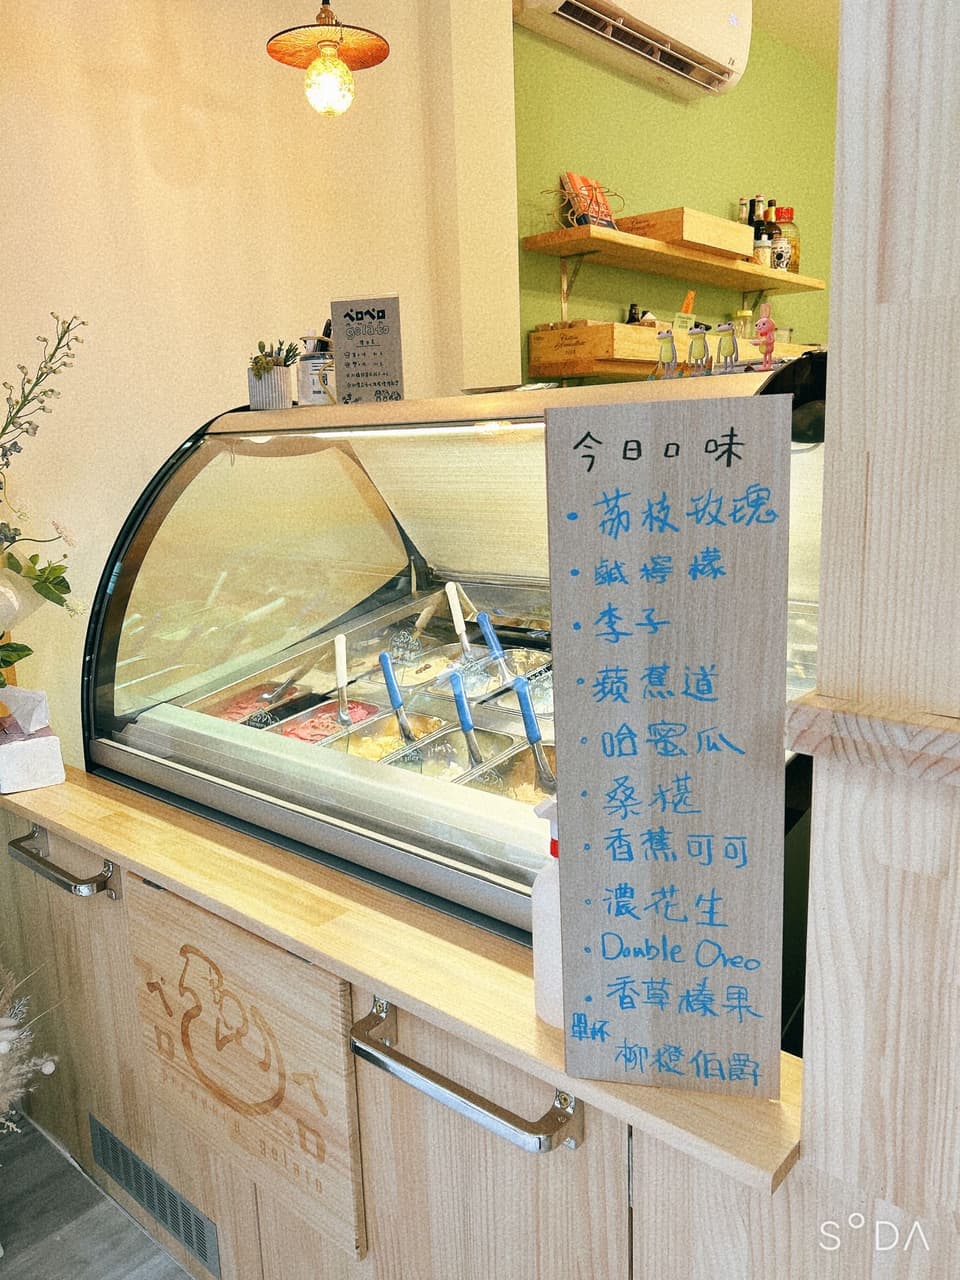 ペロペロ
gelato
今日口味
・荔枝玫瑰
・鹹檸檬
・李子
・蘋蕉道
・哈蜜瓜
・桑椹
・香蕉可可
・濃花生
・Double Oreo
・香草榛果
單杯
柳橙伯爵
ペロペロ
gelato
SODA